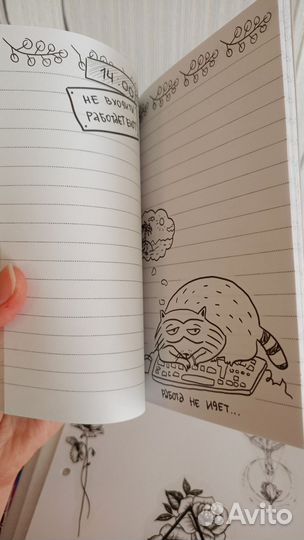 14:00
НЕ ВХОДИТЬ
РАБОТАЕТ
РАБОТА НЕ ИДЕТ...
Avito